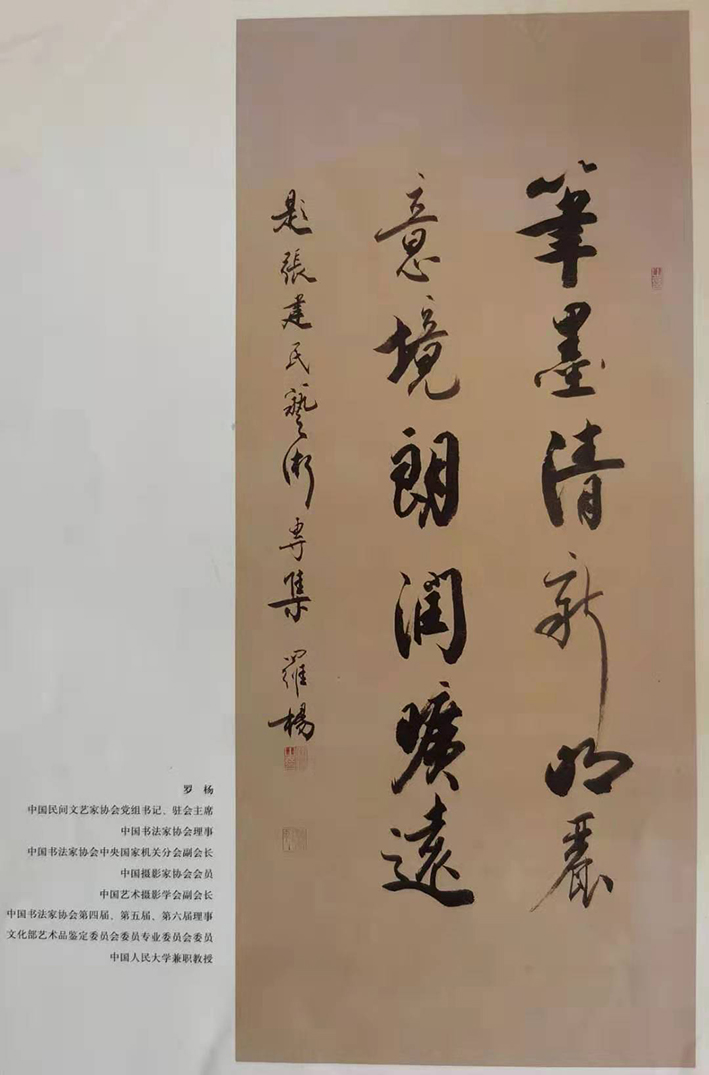 筆墨清新明麗
意境朗潤曠遠
題張建民藝術專集 羅楊
罗 杨
中国民间文艺家协会党组书记、驻会主席
中国书法家协会理事
中国书法家协会中央国家机关分会副会长
中国摄影家协会会员
中国艺术摄影学会副会长
中国书法家协会第四届、第五届、第六届理事
文化部艺术品鉴定委员会委员专业委员会委员
中国人民大学兼职教授